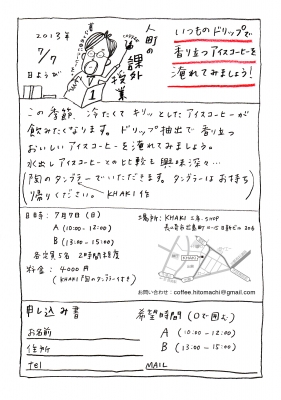 2013年
7/7
日ようび
人町の
課外
授業
1
いつものドリップで
香り立つアイスコーヒーを
淹れてみましょう!
この季節、冷たくて キリッとしたアイスコーヒーが
飲みたくなります。ドリップ抽出で香り立つ
おいしいアイスコーヒーを淹れてみましょう。
水出しアイスコーヒーとの比較も興味深々…
(陶のタンブラーでいただきます。タンブラーはお持ち
帰りください。 KHAKI作)
日時:7月7日(日)
A (10:00-12:00)
B (13:00-15:00)
各定員5名 2時間程度
料金:4000円
(KHAKI陶のタンブラー付き)
場所:KHAKI 工房.SHOP
KHAKI
お問い合わせ:coffee.hitomachi@gmail.com
申し込み書
希望時間(○で囲む)
お名前
A (10:00-12:00)
住所
B (13:00-15:00)
tel
MAIL